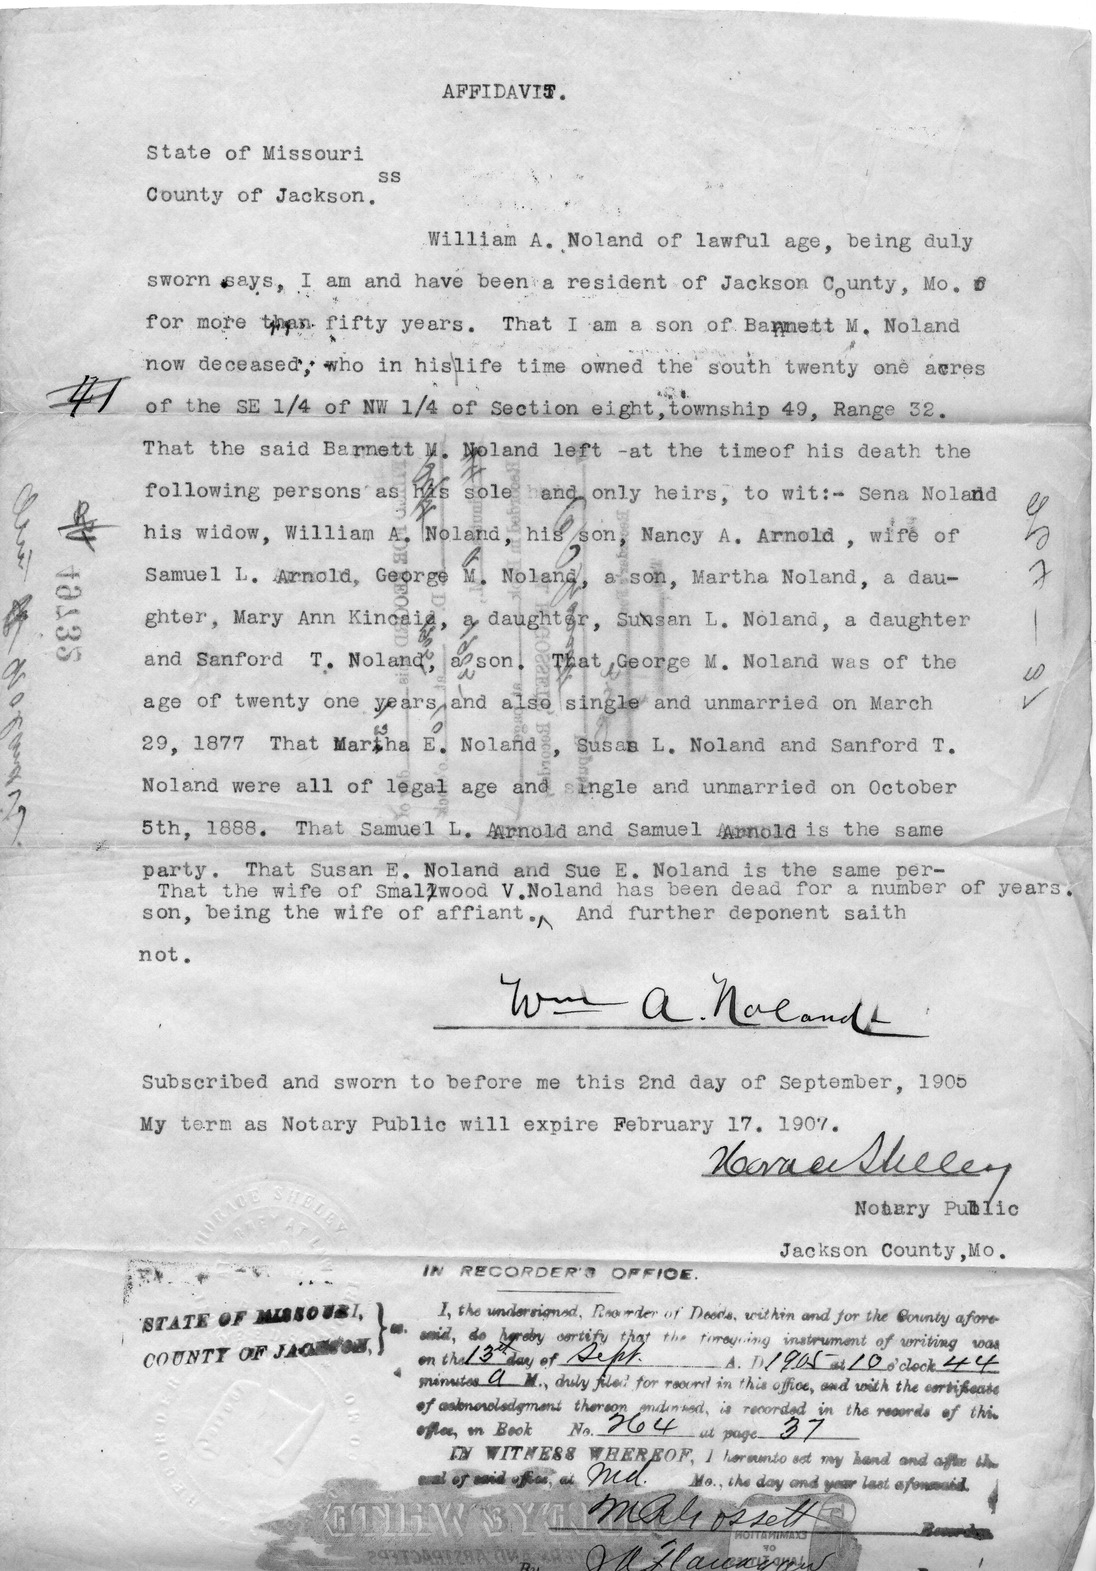 AFFIDAVIT.
State of Missouri
ss
County of Jackson.
William A. Noland of lawful age, being duly
sworn says, I am and have been a resident of Jackson County, Mo.
for more than fifty years. That I am a son of Barnett M. Noland
now deceased, who in his life time owned the south twenty one acres
41
of the SE 1/4 of NW 1/4 of Section eight, township 49, Range 32.
That the said Barnett M. Noland left -at the timeof his death the
following persons as his sole and only heirs, to wit:- Sena Noland
his widow, William A. Noland, his son, Nancy A. Arnold , wife of
Samuel L. Arnold, George M. Noland, a son, Martha Noland, a dau-
49732
ghter, Mary Ann Kincaid, a daughter, Susan L. Noland, a daughter
and Sanford T. Noland, a son. That George M. Noland was of the
age of twenty one years and also single and unmarried on March
29, 1877 That Martha E. Noland , Susan L. Noland and Sanford T.
Noland were all of legal age and ingle and unmarried on October
5th, 1888. That Samuel L. Arnold and Samuel Arnold is the same
party. That Susan E. Noland and Sue E. Noland is the same per-
That the wife of Smallwood V.Noland has been dead for a number of years.
son, being the wife of affiant. And further deponent saith
not.
Wm A. Noland
Subscribed and sworn to before me this 2nd day of September, 1905
My term as Notary Public will expire February 17. 1907.
Horace Shelley
Notary Public
Jackson County,Mo.
HORACE SHELBY
IN RECORDER'S OFFICE.
STATE OF MISSOURI,
COUNTY OF JACKSON, ss.
I, the undersigned, Recorder of Deeds, within and for the County afore-
said, do hereby certify that the foregoing instrument of writing was
on the 13 day of Sept. A. D. 1905 at 10 o'clock 44
minutes A M., duly filed for record in this office, and with the certificate
of acknowledgment thereon endorsed, is recorded in the records of this
office, in Book No. 264 at page 37
IN WITNESS WHEREOF, I hereunto set my hand and affix the
seal of said office, at Mo., the day and year last aforesaid.
Gossett
Recorder
EXAMINATION
OF
LAND TITLES
AND ABSTRACTERS
By